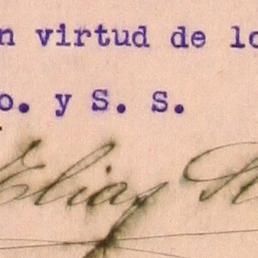 n virtud de lo
o. y S. S.
Elias